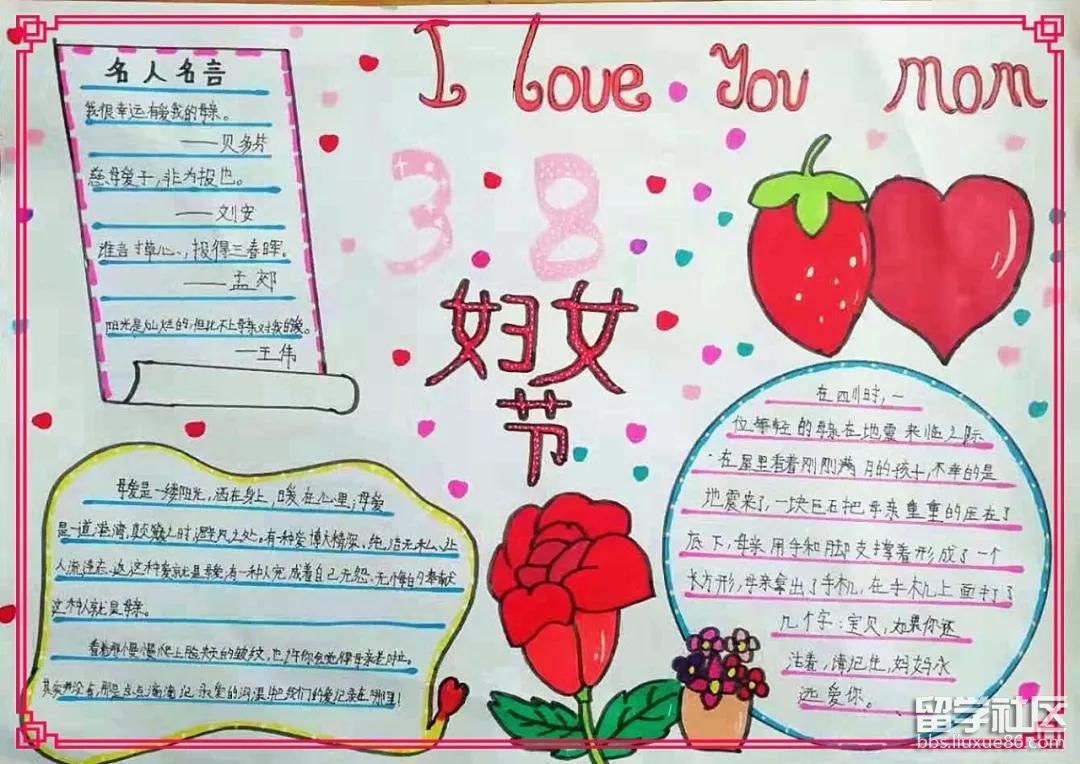 I Love You mom
38
妇女
节
名人名言
我很幸运有爱我的母亲。
——贝多芬
慈母爱子,非为报也。
——刘安
谁言寸草心,报得三春晖。
——孟郊
阳光是灿烂的,但比不上母亲对我的爱。
——王伟
母爱是一缕阳光,洒在身上,暖在心里;母爱
是一道港湾,颠簸之时,避风之处。有种爱博大精深、纯洁无私、让
人流连忘返,这种爱就是母爱;有一种人完成着自己无怨、无悔的奉献
这种人就是母亲。
看着那慢慢爬上脸夹的皱纹,也许你会觉得母亲老啦。
其实并没有,那是点点滴滴记
们的爱记录在那里!
在四川时,一
位年轻的母亲在地震来临之际
在屋里看着刚刚满月的孩子,不幸的是
地震来了,一块巨石把母亲重重的压在了
底下,母亲用手和脚支撑着形成了一个
长方形,母亲拿出了手机,在手机上面打了
几个字:宝贝,如果你还
活着,请记住,妈妈永
远爱你。
留学社区
bbs.liuxue86.com